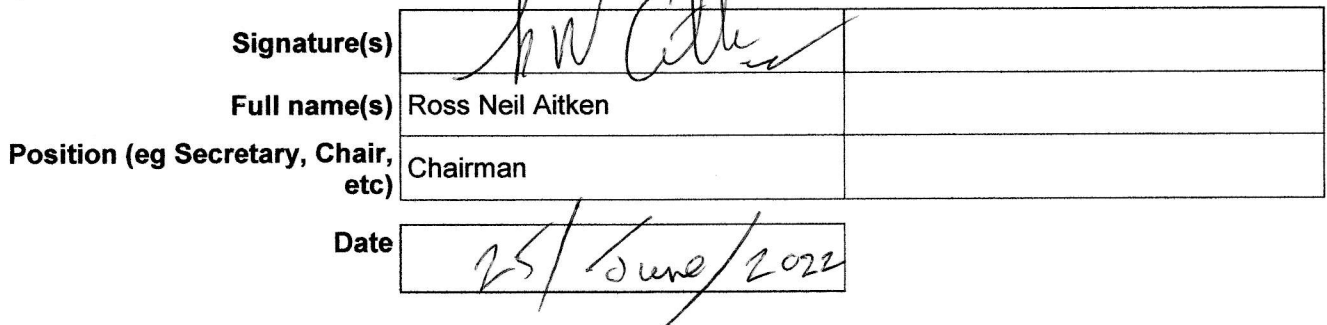 Signature(s)
Full name(s) Ross Neil Aitken
Position (eg Secretary, Chair, etc) Chairman
Date 25/June/2022